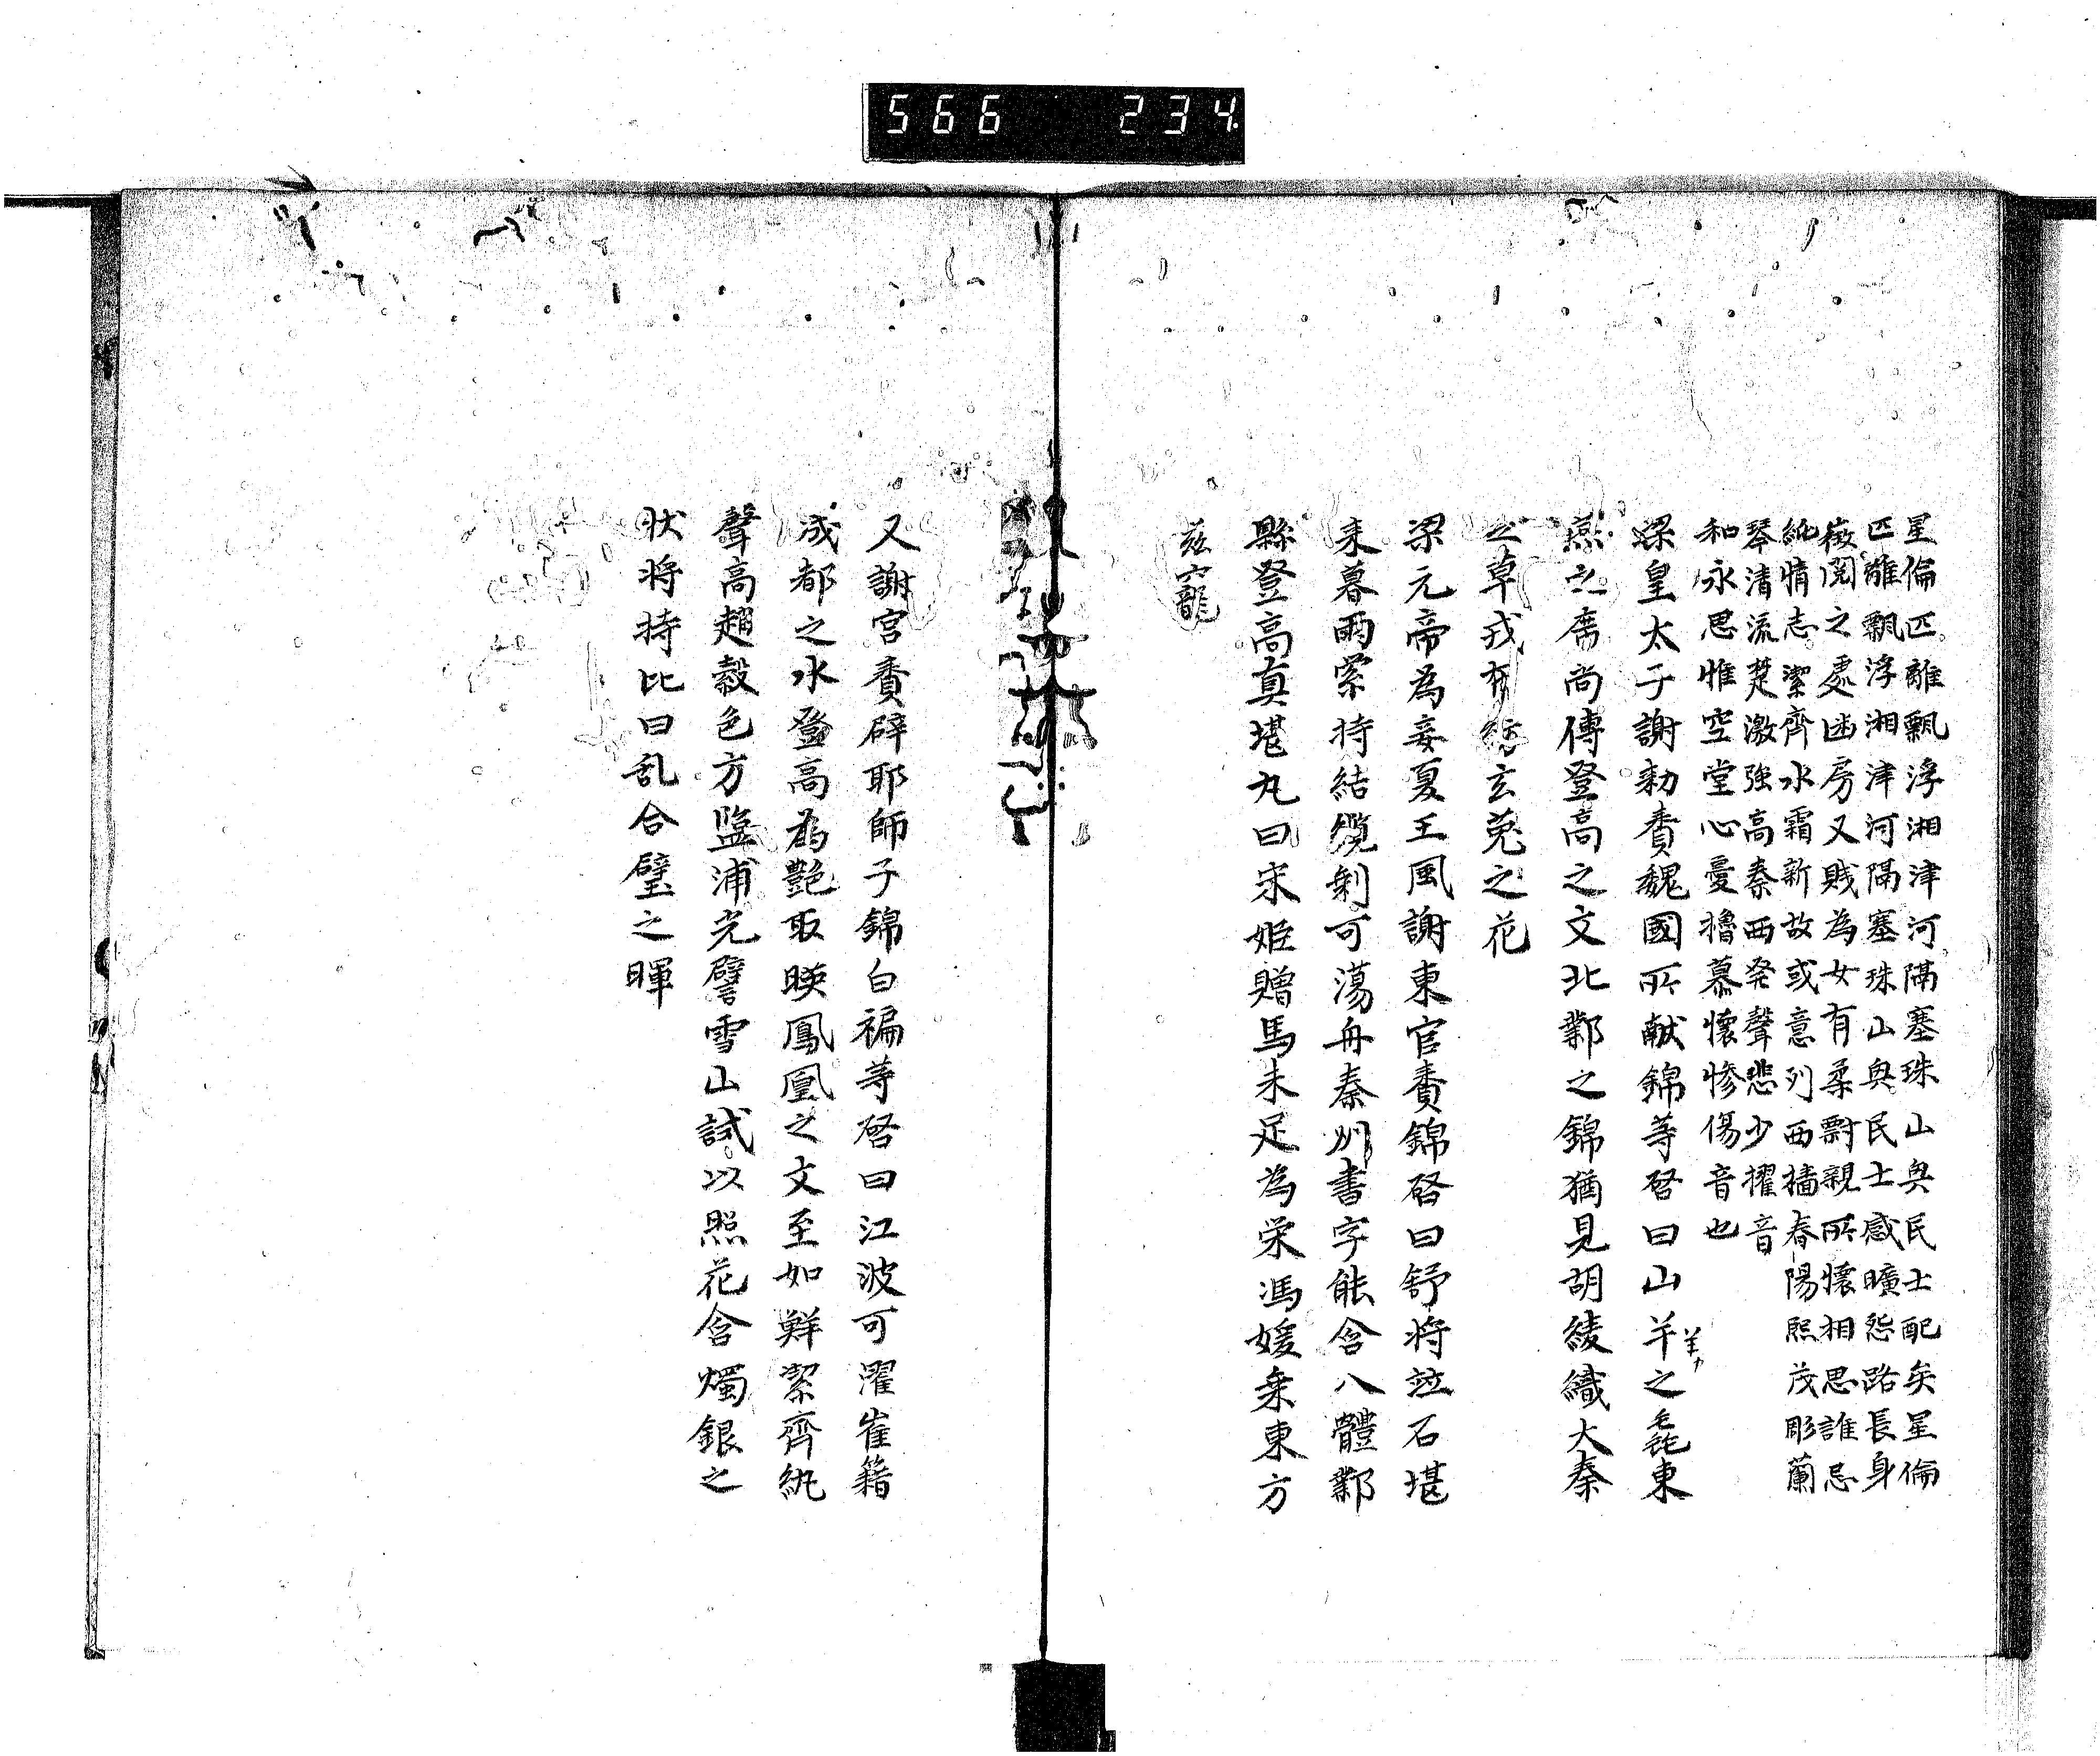 566 234
星倫匹離飄浮湘津河隔塞珠山與民士配矣星倫
匹離飄浮湘津河隔塞珠山與民士感曠怨路長身
微閔之處幽房又賎為女有柔對親所懷相思誰忌
純情志潔齊氷霜新故或意列西墻春陽熙茂彫蘭
琴清流楚激強高秦西発聲悲少擢音
和永思惟空堂心憂擔慕懷慘傷音也
梁皇太子謝勑賚魏國所献錦等啓曰山羊之毳東
羊
燕之席尚傳登高之文北鄴之錦猶見胡綾織大秦
之草戎布紡玄菟之花
梁元帝為妾夏王風謝東宮賚錦啓曰舒將竝石堪
来暮雨縈持結纜剣可蕩舟秦州書字能含八體鄴
縣登高真堪丸日宋姫贈馬未足為栄馮媛乗東方
茲寵
又謝宮賚辟耶師子錦白褊等啓曰江波可濯雀籍
成都之水登高為艶取暎鳳凰之文至如鮮潔齊紈
聲高趙縠色方藍浦光譬雪山試以照花含燭銀之
状将持比日乱合璧之暉